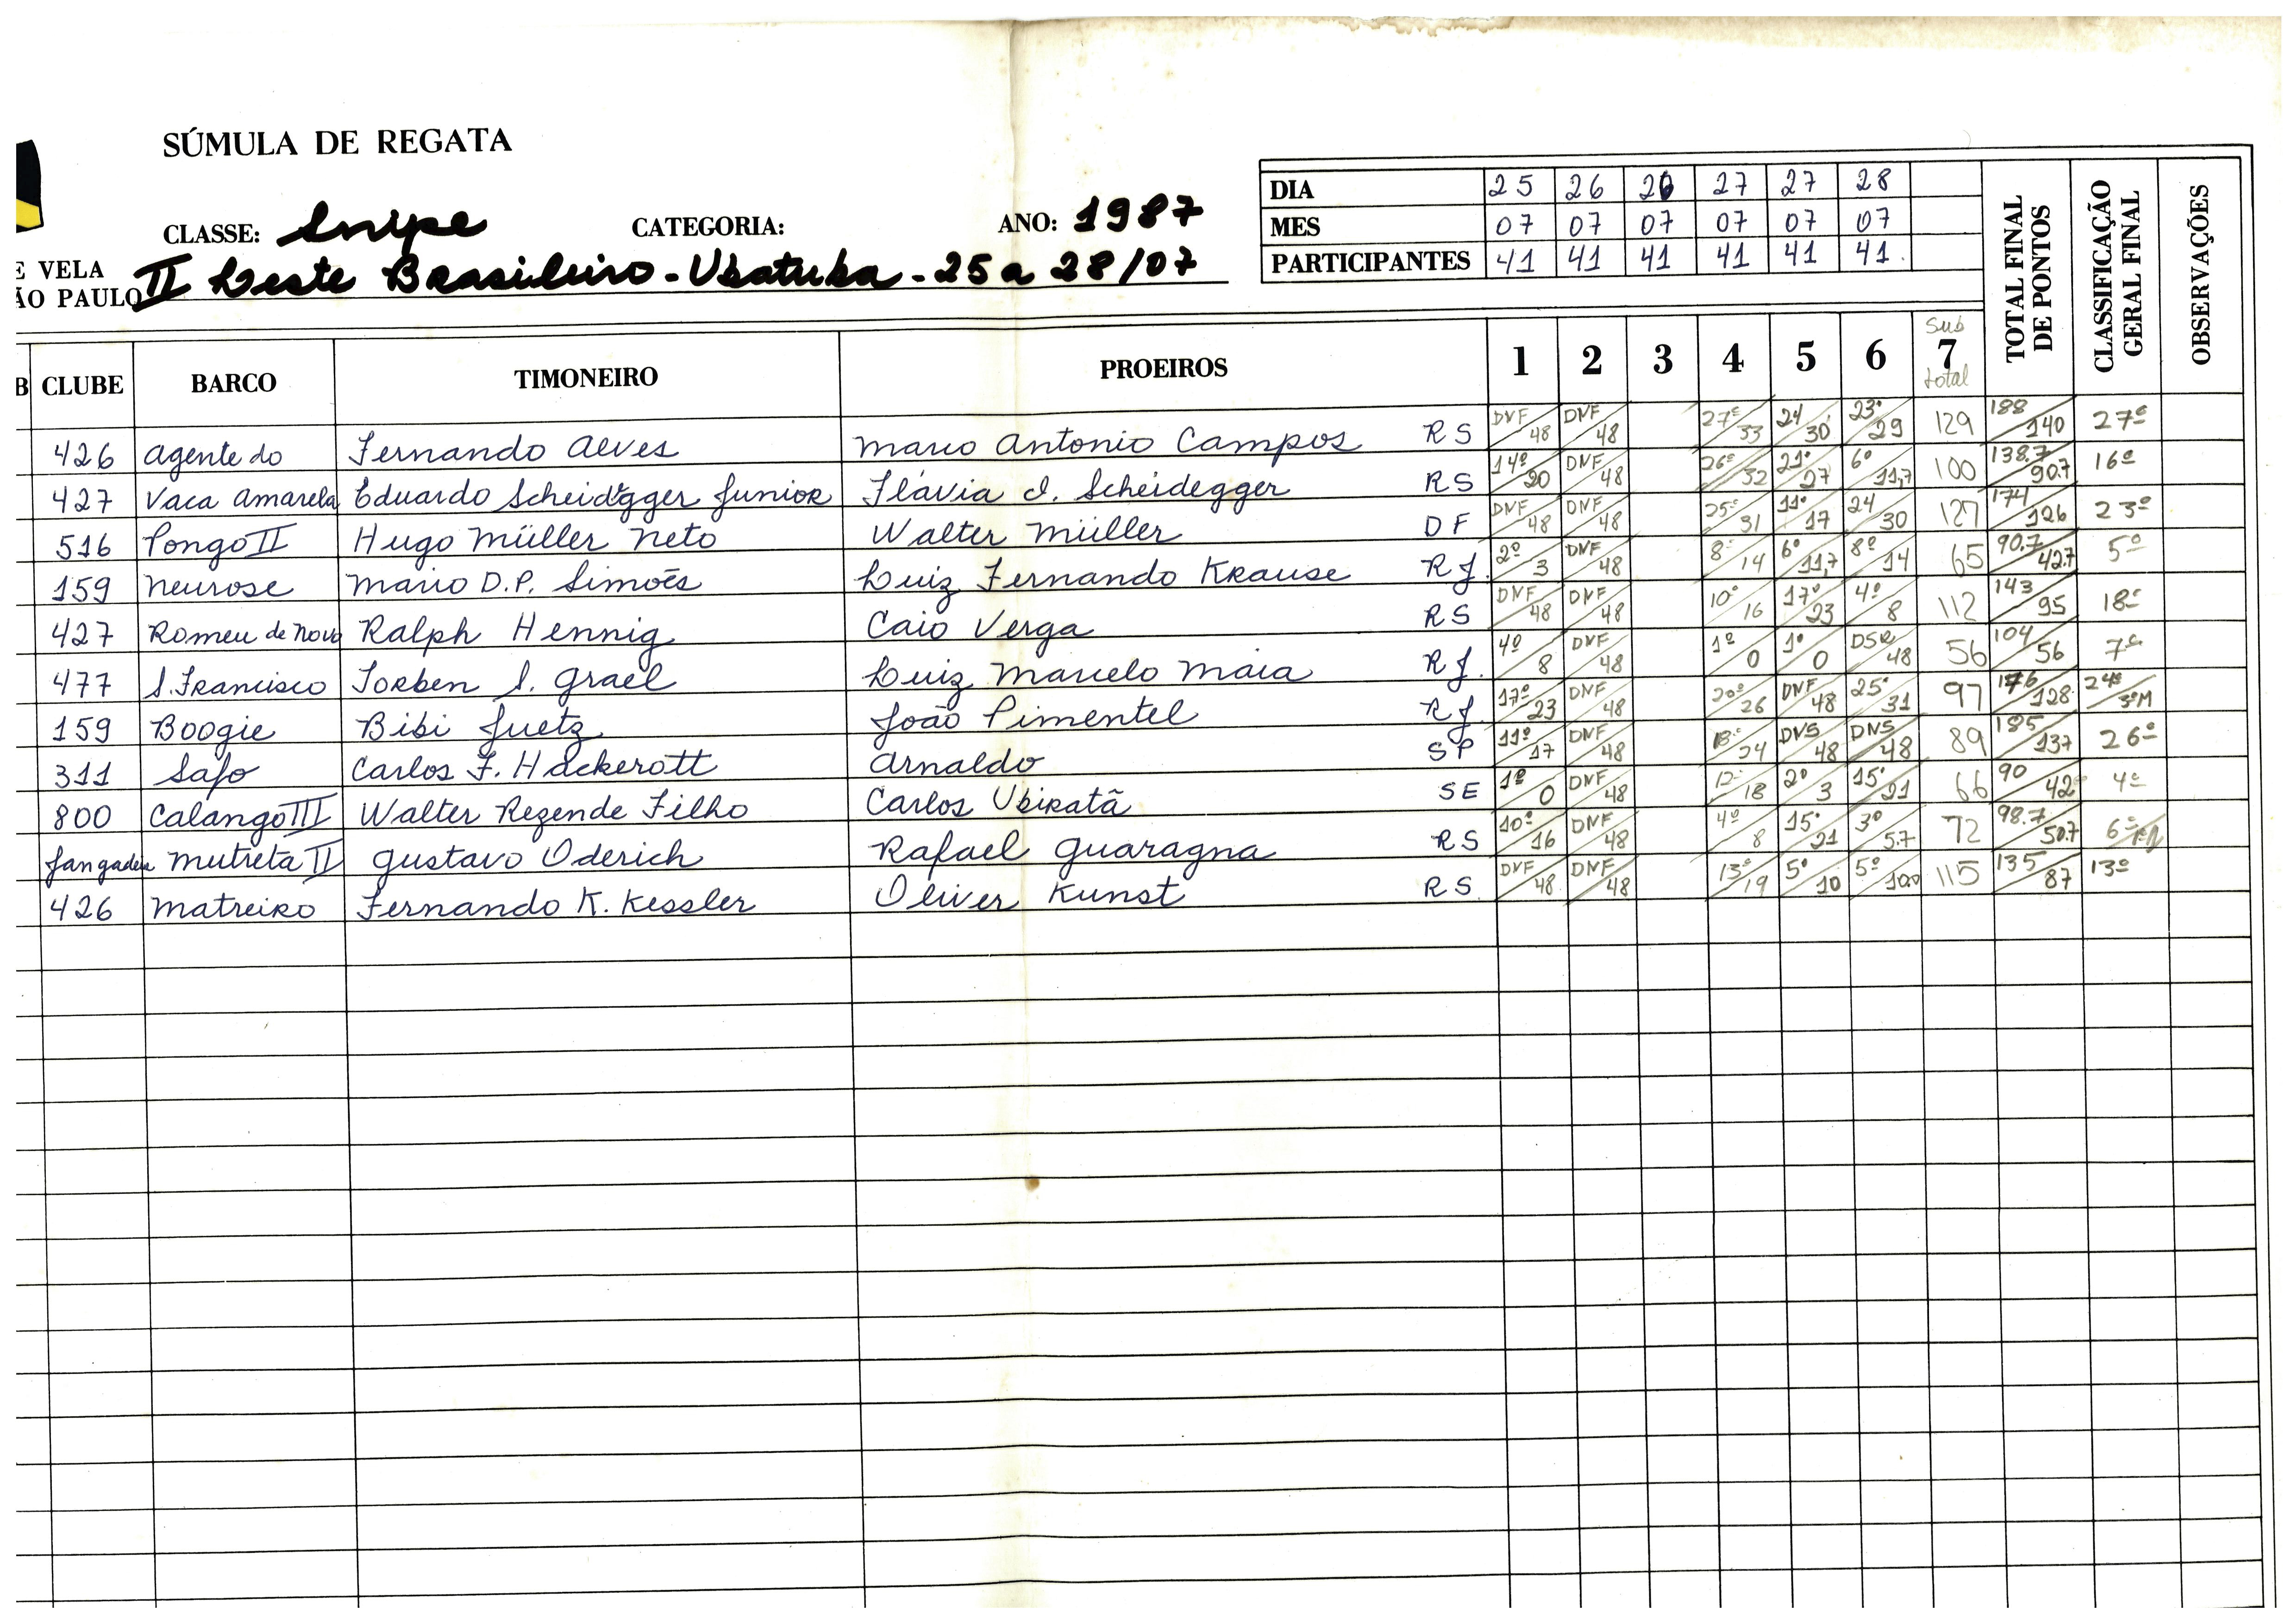 SÚMULA DE REGATA
CLASSE: Snipe CATEGORIA: ANO: 1987
E VELA
ÃO PAULO II Leste Brasileiro - Ubatuba - 25 a 28/07
DIA 25 26 26 27 27 28
MES 07 07 07 07 07 07
PARTICIPANTES 41 41 41 41 41 41.
TOTAL FINAL DE PONTOS
CLASSIFICAÇÃO GERAL FINAL
OBSERVAÇÕES
B CLUBE BARCO TIMONEIRO PROEIROS 1 2 3 4 5 6 Sub 7 total
426 Agente do Fernando Alves Marco Antonio Campos RS DNF/48 DNF/48 27º/33 24/30 23º/29 129 188/140 27º
427 Vaca Amarela Eduardo Scheidegger Junior Flávia I. Scheidegger RS 14º/20 DNF/48 26º/32 21º/27 6º/11,7 100 138.7/90.7 16º
516 Pongo II Hugo Müller Neto Walter Müller DF DNF/48 DNF/48 25º/31 11º/17 24/30 127 174/126 23º
159 Neurose Mario D.P. Simões Luiz Fernando Krause RJ. 2º/3 DNF/48 8º/14 6º/11,7 8º/14 65 90.7/42.7 5º
427 Romeu de Novo Ralph Hennig Caio Verga RS DNF/48 DNF/48 10º/16 17º/23 4º/8 112 143/95 18º
477 S. Francisco Torben S. Grael Luiz Marcelo Maia RJ. 4º/8 DNF/48 1º/0 1º/0 DSQ/48 56 104/56 7º
159 Boogie Bibi Juetz João Pimentel RJ 17º/23 DNF/48 20º/26 DNF/48 25º/31 97 176/128 24º/3ºM
311 Safo Carlos F. Hackerott Arnaldo SP 11º/17 DNF/48 18º/24 DNS/48 DNS/48 89 185/137 26º
800 Calango III Walter Rezende Filho Carlos Ubiratã SE 1º/0 DNF/48 12º/18 2º/3 15º/21 66 90/42 4º
Jangadeir Mutreta II Gustavo Oderich Rafael Guaragna RS 10º/16 DNF/48 4º/8 15º/21 3º/5.7 72 98.7/50.7 6º
426 Matreiro Fernando K. Kessler Oliver Kunst RS DNF/48 DNF/48 13º/19 5º/10 5º/10.0 115 135/87 13º